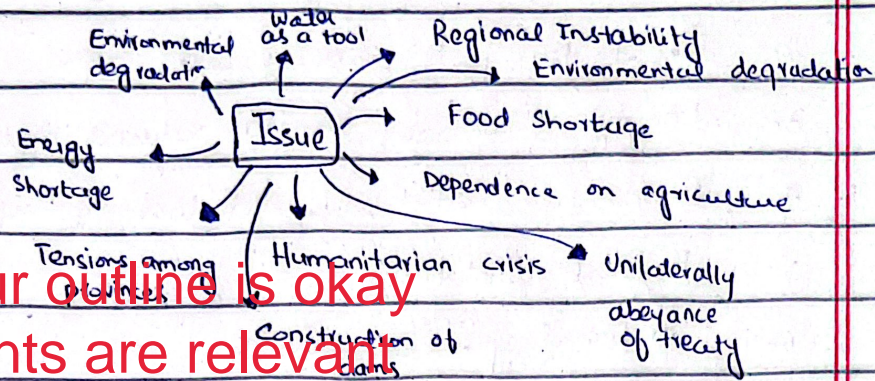 Water
as a tool
Environmental
degradatn
Regional Instability
Environmental degradation
Issue
Food Shortage
Energy
Shortage
Dependence on agriculture
Tensions among
provinces
Humanitarian crisis
Unilaterally
abeyance
of treaty
Construction of
dams
ur outline is okay
nts are relevant